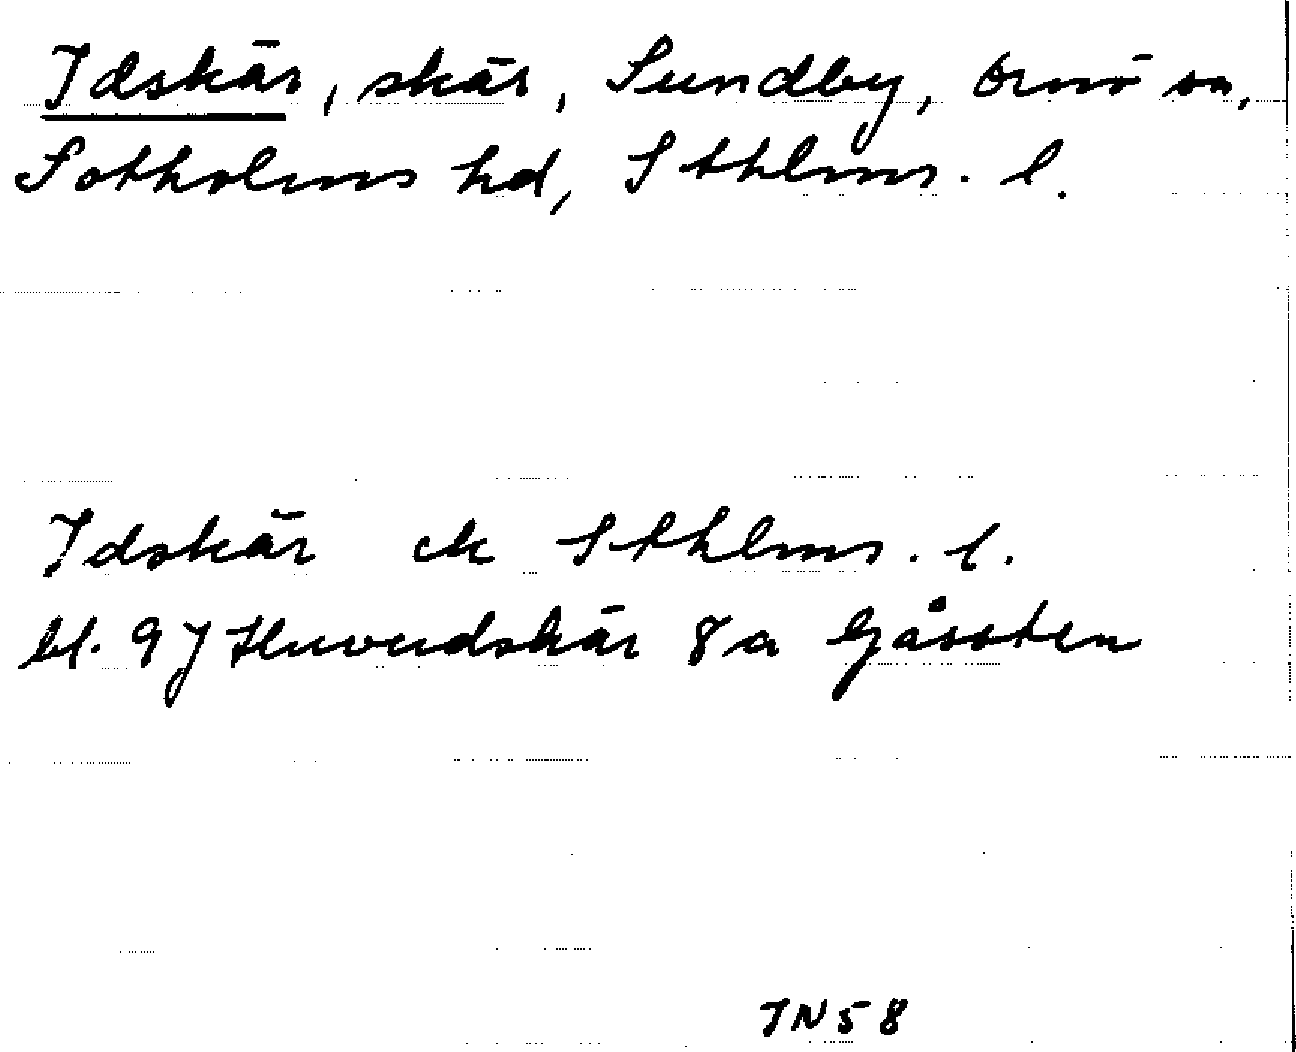 Idskär, skär, Sundby, Ornö sn,
Sotholms hd, Sthlms. l.
Idskär ek Sthlms. l.
bl. 9J Huvudskär 8a Gåssten
IN58